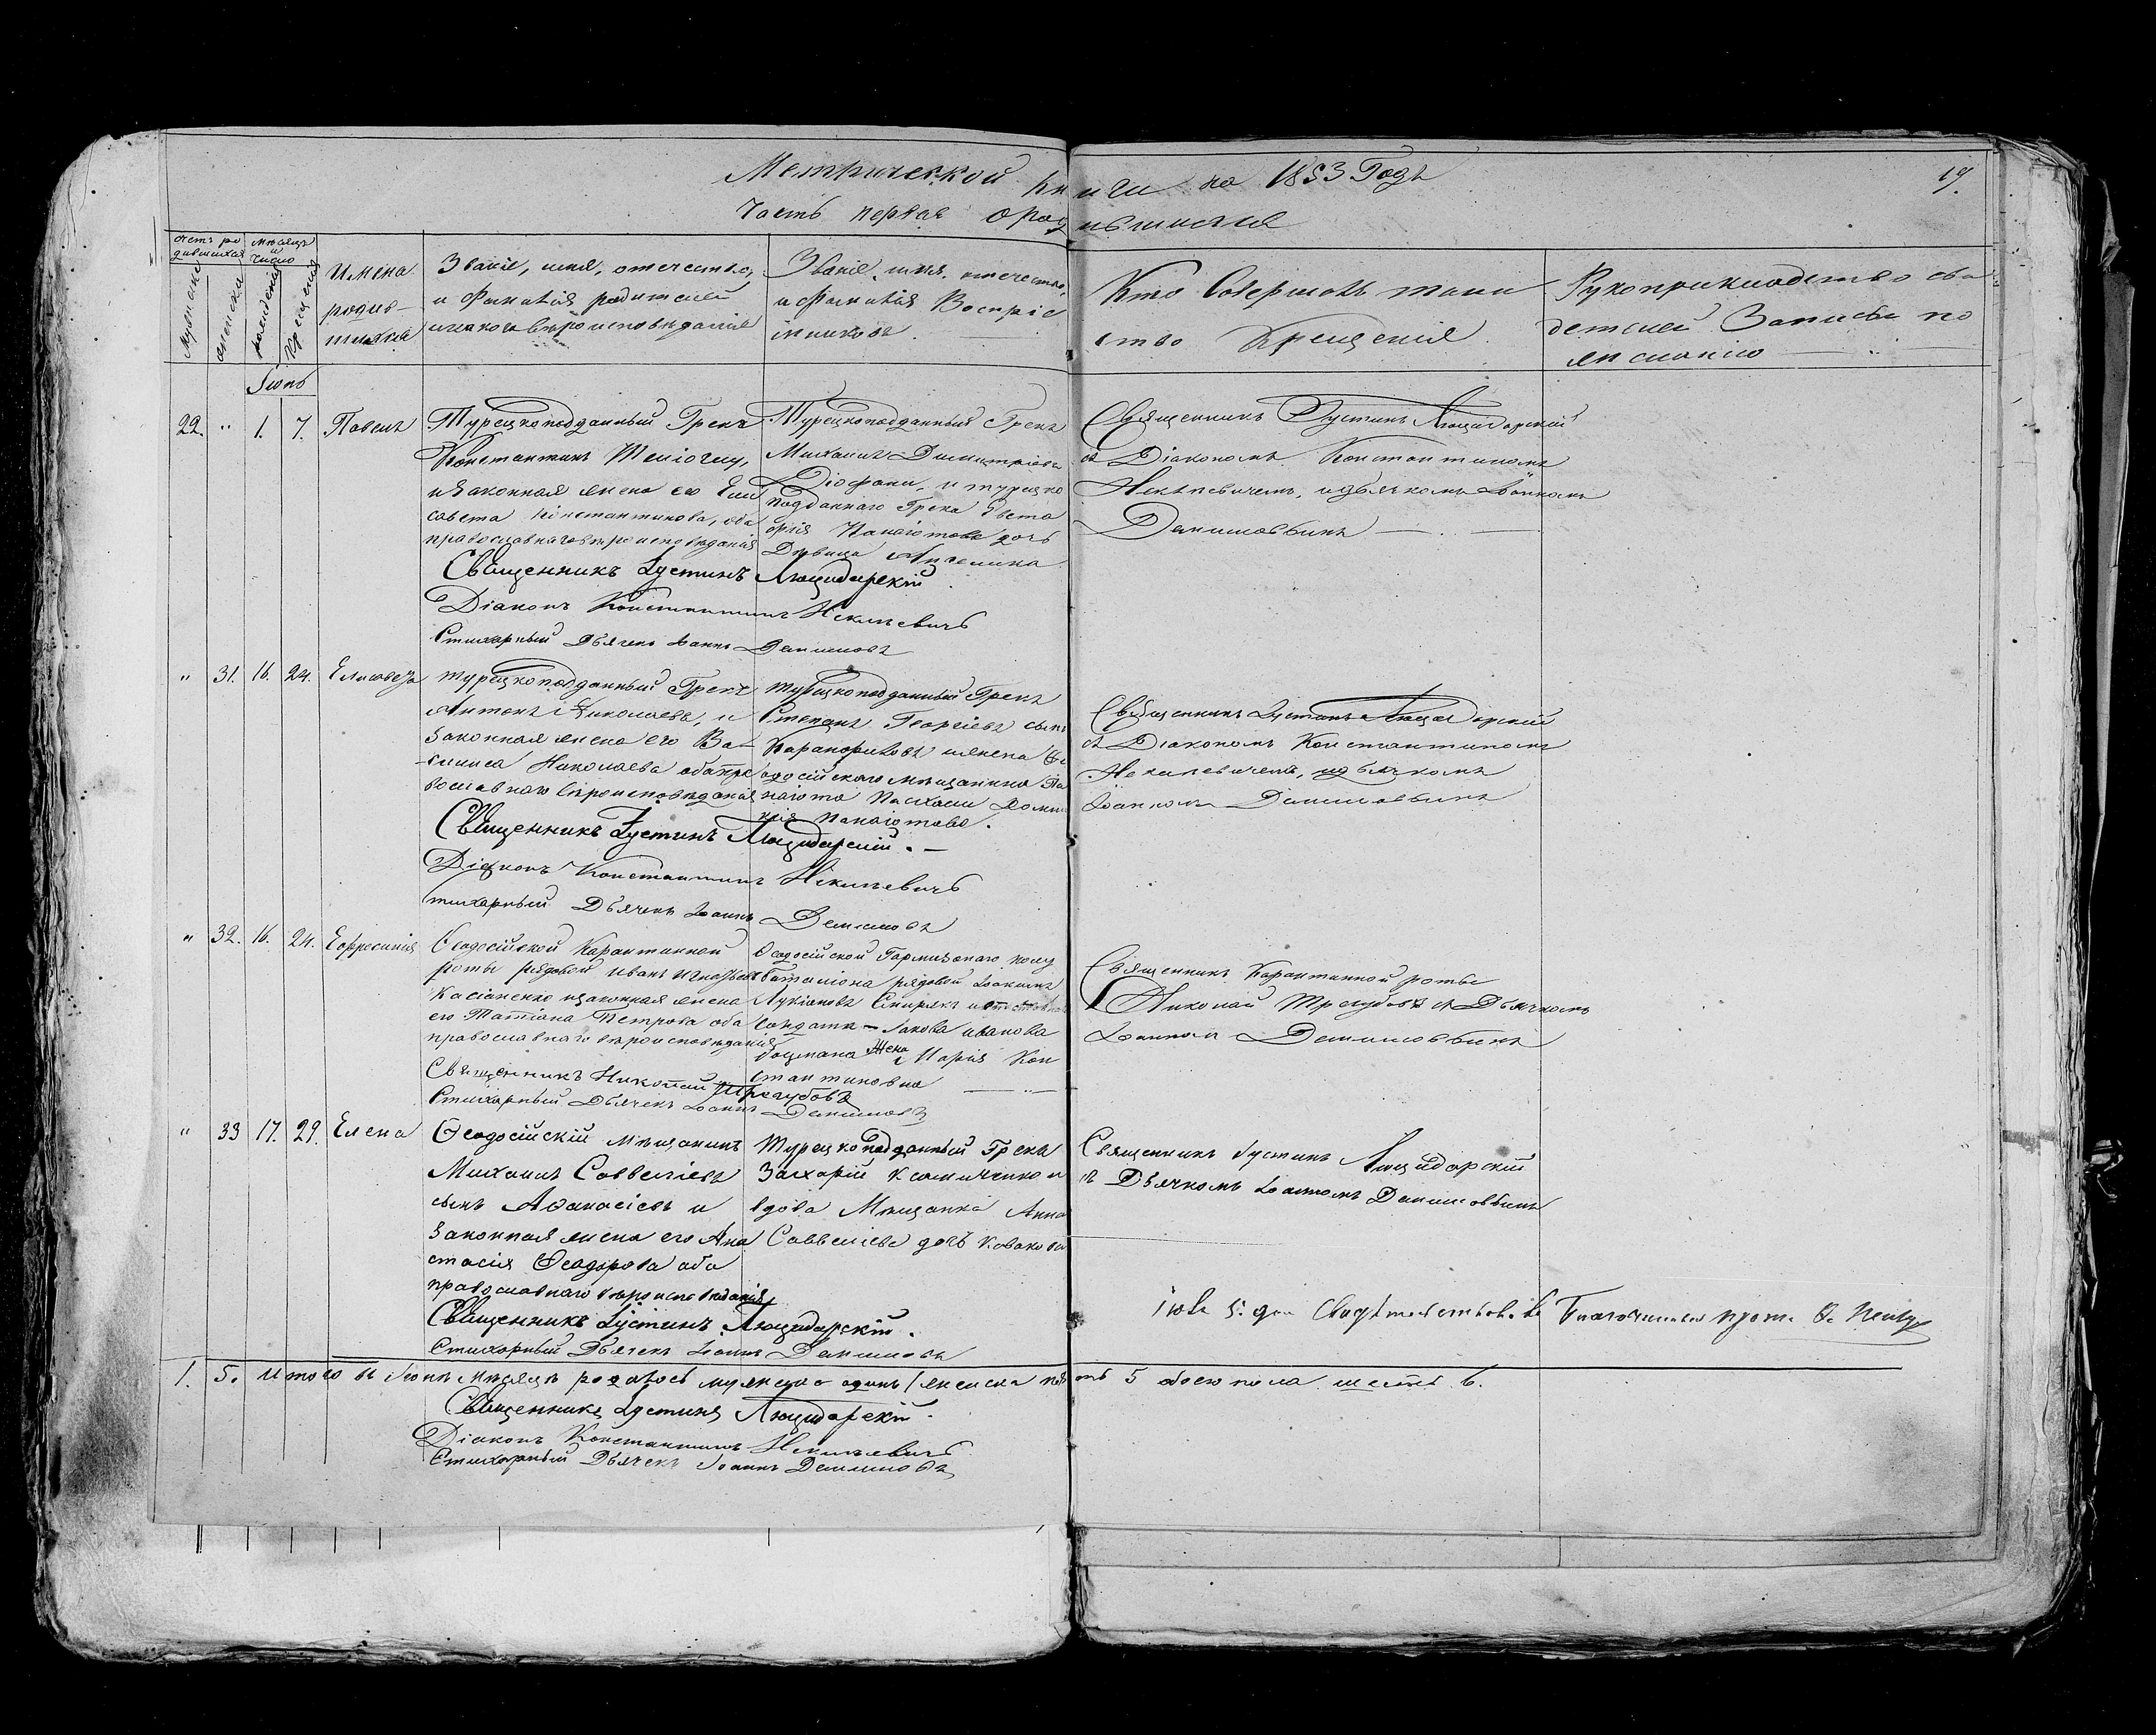 Метрической книги на 1853 Годъ
19.
Часть первая о родившихся
Счетъ ро
дившихся
Мѣсяцъ
и
Число
Мужска
женска
рожденія
Крещенія
Имена
родив-
шихся
Званіе, имя, отечество,
и Фамилія родителей
и какого вѣроисповѣданія
Званіе, имя, отечество,
и Фамилія Воспріе
мниковъ.
Кто Совершалъ таин
ство Крещенія.
Рукоприкладство сви
детелей Записи по
желанію
Іюнь
22. " 1. 7. Павелъ
Турецкоподданный Грекъ
Константинъ
и законная жена его Ели
савета Константинова, оба
православнаго вѣроисповѣданія
Турецкоподданный Грекъ
Михаилъ Димитріевъ
и турецко
подданнаго Грека
Панаіотова дочь
Дѣвица Ангелина
Священникъ Іустинъ Люцидарскій
съ Діакономъ Константиномъ
Некилевичемъ, и дьячкомъ Іоанномъ
Данимовымъ
Священникъ Іустинъ Люцидарскій
Діаконъ Константинъ Некилевичъ
Стихарный Дьячекъ Іоаннъ Данимовъ
" 31. 16. 24. Елисавета
турецкоподданный Грекъ
Антонъ Николаевъ, и
законная жена его Ва-
Николаева оба пра
вославнаго вѣроисповѣданія
турецкоподданный Грекъ
Степанъ Георгіевъ сынъ
и жена Ѳе
одосійскаго мѣщанина Па
наіота
Панаіотова.
Священникъ Іустинъ Люцидарскій
съ Діакономъ Константиномъ
Некилевичемъ, и дьячкомъ
Іоанномъ Данимовымъ
Священникъ Іустинъ Люцидарскій. -
Діаконъ Константинъ Некилевичъ
Стихарный Дьячекъ Іоаннъ Данимовъ
" 32. 16. 24. Евфросинія
Ѳеодосійской Карантинной
роты рядовой Иванъ Игнатьевъ
Касіаненко и законная жена
его Татіана Петрова оба
православнаго вѣроисповѣданія
Ѳеодосійской Гарнизонаго полу
баталіона рядовой Іоакимъ
Лукіановъ
солдата - Іакова Иванова
Боцмана Жена Марія Кон
стантиновна
Священникъ Карантинной роты
Николай Трегубовъ съ Дьячкомъ
Іоанномъ Данимовымъ
Священникъ Николай Трегубовъ
Стихарный Дьячекъ Іоаннъ Данимовъ
" 33 17. 29. Елена
Ѳеодосійскій мѣщанинъ
Михаилъ Саввеліевъ
сынъ Аѳанасіевъ и
Законная жена его Ана
стасія Ѳеодорова оба
православнаго вѣроисповѣданія
Турецкоподданный Грекъ
Захарій и
вдова Мѣщанка Анна
Саввеліева дочь
Священникъ Іустинъ Люцидарскій
съ Дьячкомъ Іоанномъ Данимовымъ
Священникъ Іустинъ Люцидарскій.
Стихарный Дьячекъ Іоаннъ Данимовъ
5. дня Свидѣтельствовалъ Благочинный
1. 5. Итого въ Іюнѣ мѣсяцѣ родилось мужеска одинъ 1 женска пять 5 обоего пола шесть 6.
Священникъ Іустинъ Люцидарскій.
Діаконъ Константинъ Некилевичъ
Стихарный Дьячекъ Іоаннъ Данимовъ